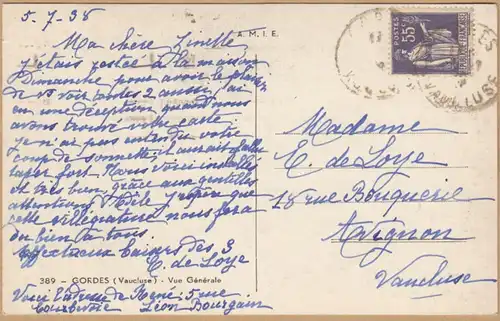 5-7-38
A.M.I.E.
Ma chère Ginette
J'étais restée à la maison
Dimanche pour avoir le plaisir
de vs voir toutes 2 aussi, j'ai
eu une déception quand nous
avons trouvé votre carte
je n'ai pas entendu votre
coup de sonnette, il aurait fallu
taper fort. Nous voici installés
et très bien, grâce aux gentilles
attentions d'Adèle j'espère que
cette villégiature nous fera
du bien à tous.
Affectueux baisers des 3
E. de Loye
389 - GORDES (Vaucluse) - Vue Générale
Voici l'adresse de René: 5 rue
Courbevoie Léon Bourgain
POSTES
55c
VAUCLUSE
Madame
E. de Loye
18 rue Bouquerie
Avignon
Vaucluse